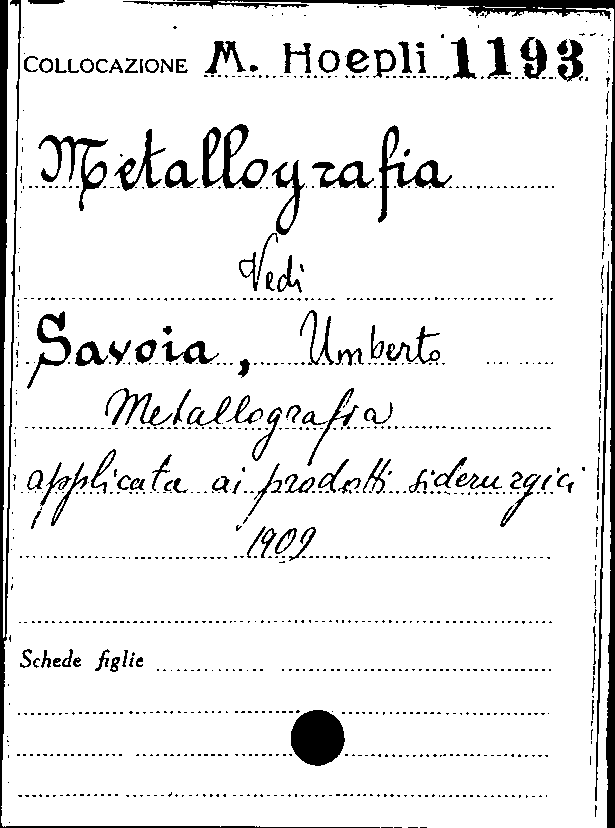 COLLOCAZIONE M. Hoepli 1193
Metallografia
Vedi
Savoia, Umberto
Metallografia
applicata ai prodotti siderurgici
1909
Schede figlie